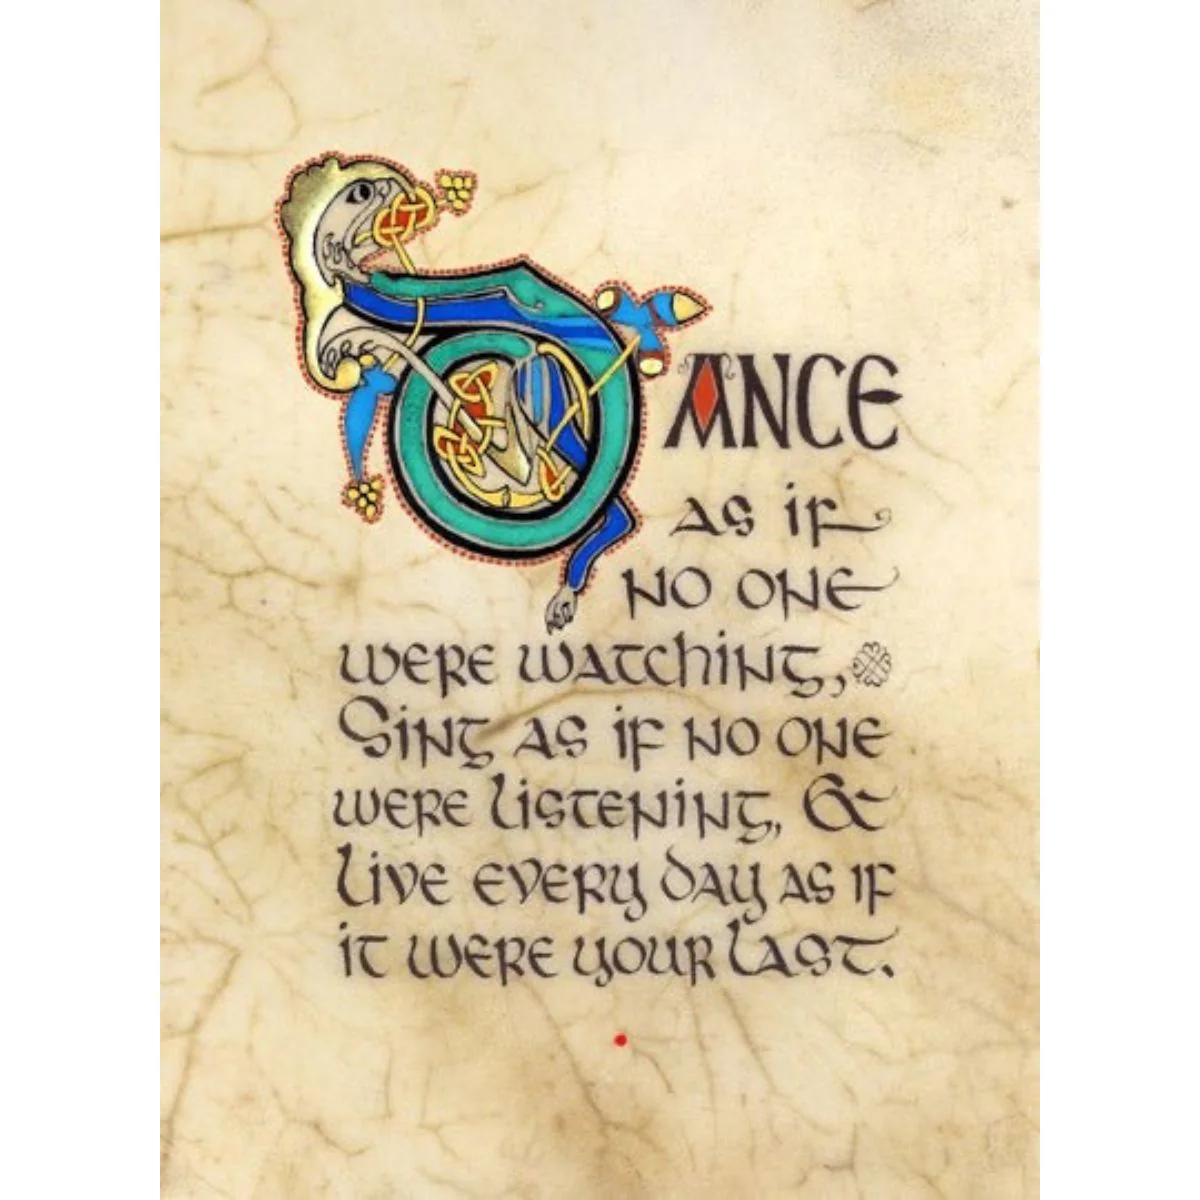 DANCE
as if
no one
were watching,
Sing as if no one
were listening, &
live every day as if
it were your last.